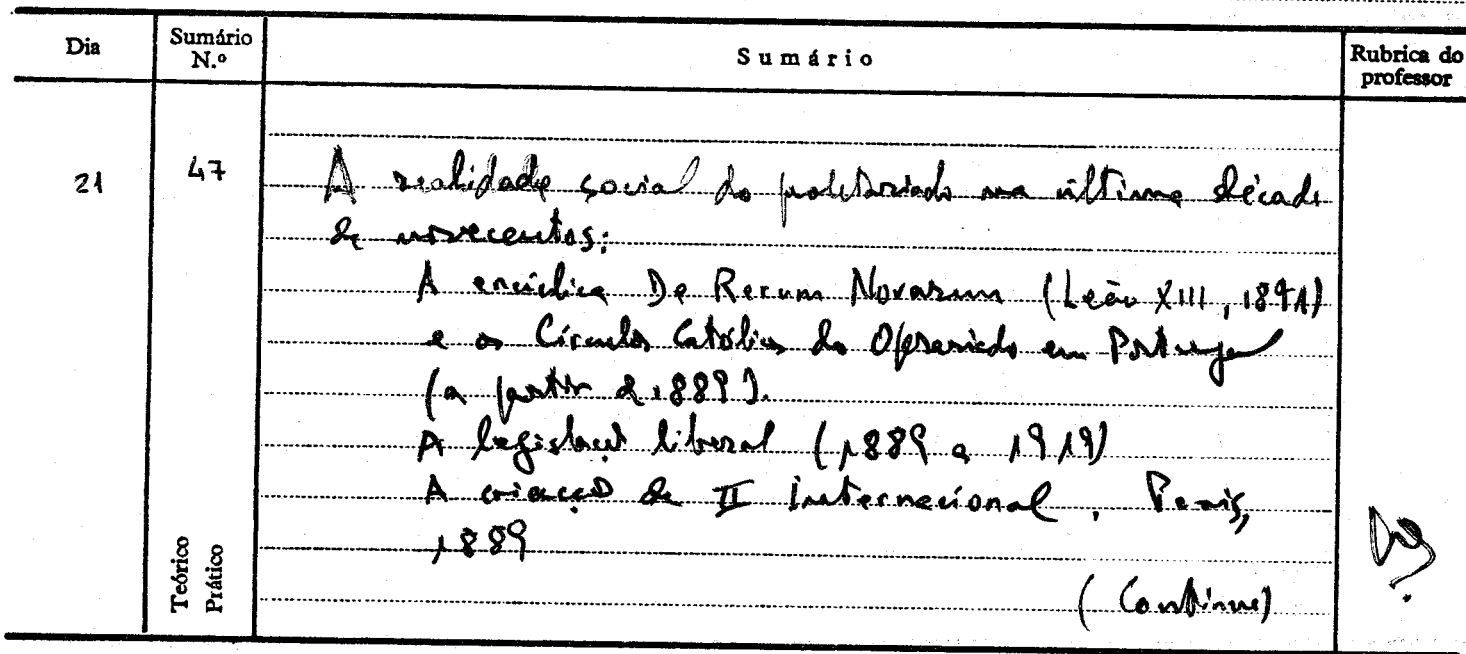 Dia
Sumário N.º
Sumário
Rubrica do professor
21
47
A realidade social do proletariado na última década
de novecentos:
A encíclica De Rerum Novarum (Leão XIII, 1891)
e os Círculos Católicos do Operariado em Portugal
(a partir de 1889).
A legislação liberal (1889 a 1919)
A criação da II Internacional. Paris,
1889
(Continua)
Teórico
Prático